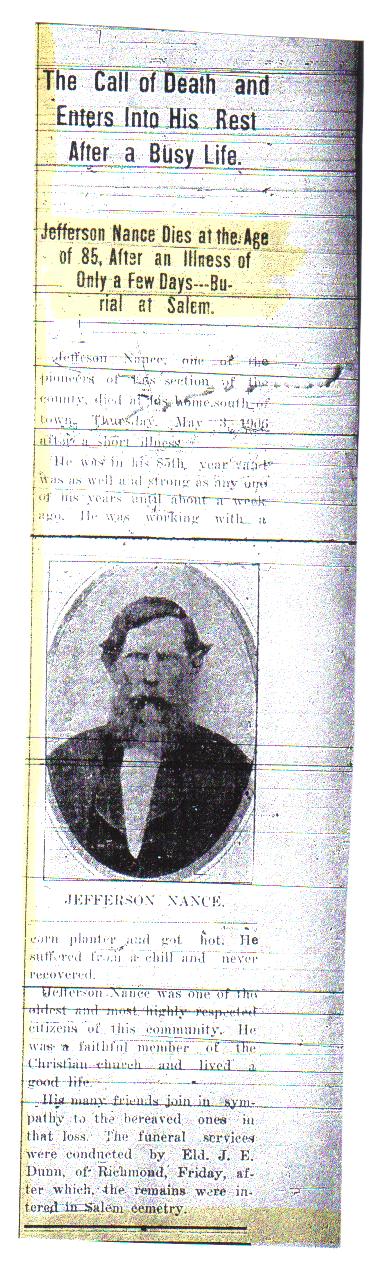 The Call of Death and
Enters Into His Rest
After a Busy Life.
Jefferson Nance Dies at the Age
of 85, After an Illness of
Only a Few Days---Bu-
rial at Salem.
Jeffeson Nance, one of the
pioneers of this section of the
county, died at his home south of
town, Thursday, May 3, 1906
after a short illness.
He was in his 85th year and
was as well and strong as any one
of his years until about a week
ago. He was working with a
JEFFERSON NANCE.
corn planter and got hot. He
suffered from a chill and never
recovered.
Jefferson Nance was one of the
oldest and most highly respected
citizens of this community. He
was a faithful member of the
Christian church and lived a
good life.
His many friends join in sym-
pathy to the bereaved ones in
that loss. The funeral services
were conducted by Eld. J. E.
Dunn, of Richmond, Friday, af-
ter which, the remains were in-
tered in Salem cemetry.